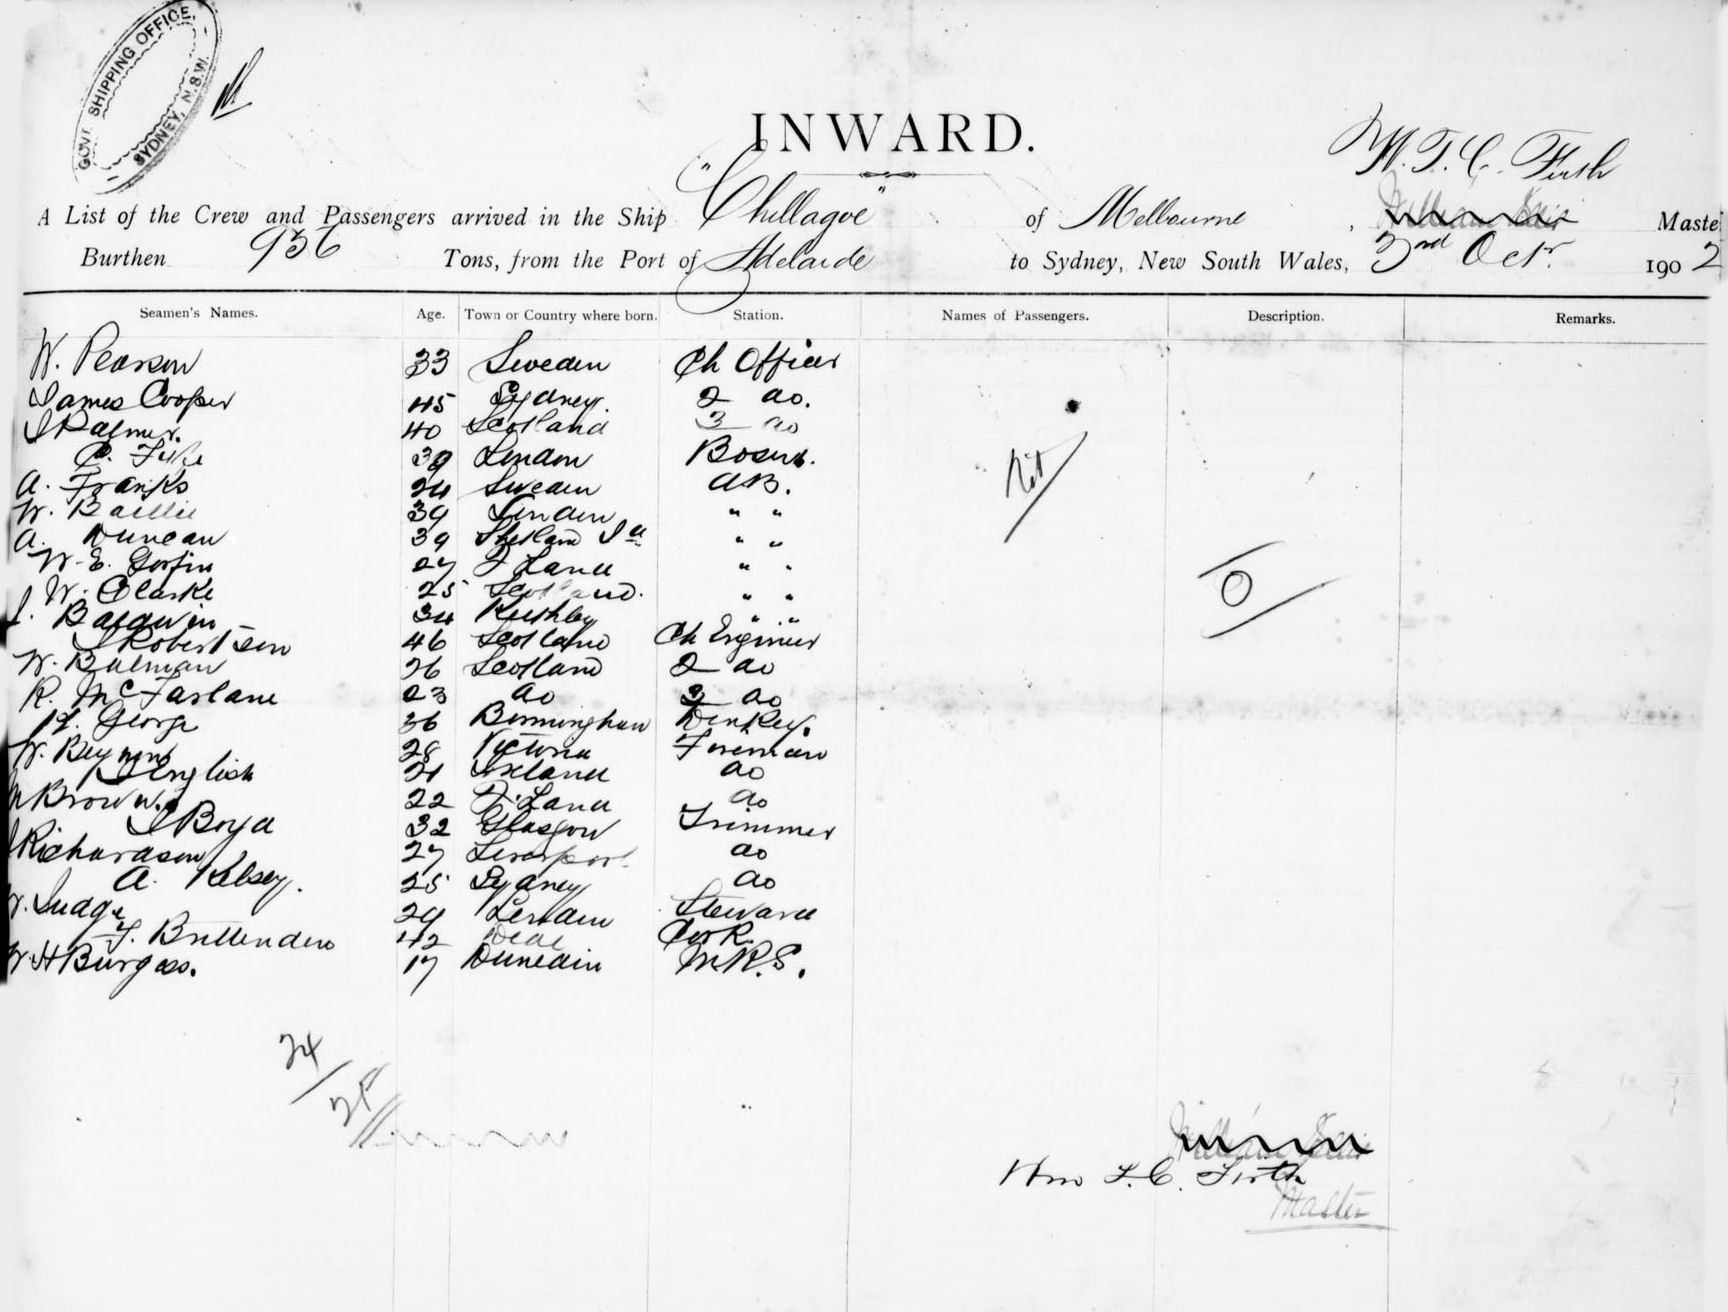 GOVT SHIPPING OFFICE,
SYDNEY, N.S.W.
INWARD.
W. T. C. Firth
A List of the Crew and Passengers arrived in the Ship "Chillagoe" of Melbourne, Master
Burthen 956 Tons, from the Port of Adelaide to Sydney, New South Wales, 3rd Octr. 1902
Seamen's Names. Age. Town or Country where born. Station. Names of Passengers. Description. Remarks.
W. Pearson 33 Sweden Ch Officer
James Cooper 45 Sydney. 2 do.
J Palmer. 40 Scotland 3 do
C. 39 London Bosun.
A. Franks 24 Sweden AB.
W. Baillie 39 London " "
A. Duncan 39 Shetland Is " "
W. E. 27 F Land " "
J W. Clarke 25 Scotland. " "
J. Baldwin 34 " "
J Robertson 46 Scotland Ch Engineer
W. Bulman 26 Scotland 2 do
R. McFarlane 23 do 3 do
H. George 36 Birmingham Donkey.
W. 28 Victoria Fireman
J English 21 Ireland do
W Brown. 22 F. Land do
J Boyd 32 Glasgow Trimmer
J Richardson 27 Liverpool. do
A. Kelsey. 25 Sydney do
W. Judge 29 London Steward
T. Brittenden 42 Deal Cook
W. H Burgess. 17 Dunedin M.R.S.
Nil
0
24/
25//
Wm T. C. Firth
Master